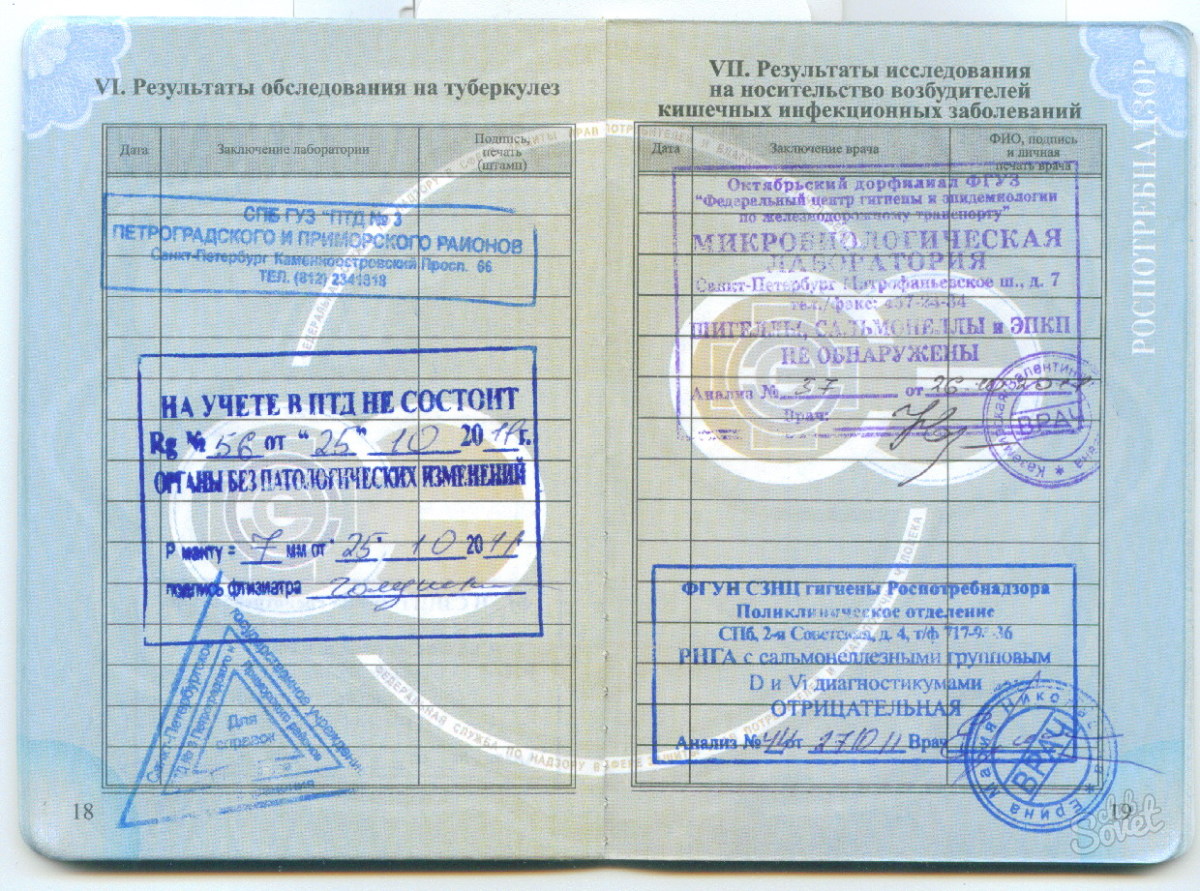 VI. Результаты обследования на туберкулез
Дата
Заключение лаборатории
Подпись,
печать
(штамп)
СПБ ГУЗ "ПТД № 3
ПЕТРОГРАДСКОГО И ПРИМОРСКОГО РАЙОНОВ
Санкт-Петербург Каменноостровский Просп. 66
ТЕЛ. (812) 2341818
НА УЧЕТЕ В ПТД НЕ СОСТОИТ
Rg № 56 от "25" 10 2011 г.
ОРГАНЫ БЕЗ ПАТОЛОГИЧЕСКИХ ИЗМЕНЕНИЙ
Р манту = 7 мм от 25 10 2011
подпись фтизиатра
государственное учреждение
Санкт-Петербургское
Приморский районов
Для
справок
18
VII. Результаты исследования
на носительство возбудителей
кишечных инфекционных заболеваний
Дата
Заключение врача
ФИО, подпись
и личная
печать врача
Октябрьский дорфилиал ФГУЗ
"Федеральный центр гигиены и эпидемиологии
по железнодорожному транспорту"
МИКРОБИОЛОГИЧЕСКАЯ
ЛАБОРАТОРИЯ
Санкт-Петербург Митрофаньевское ш., д. 7
тел./факс:
ШИГЕЛЛЫ, САЛЬМОНЕЛЛЫ и ЭПКП
НЕ ОБНАРУЖЕНЫ
Анализ № 37 от 26 10 2011
Врач:
ВРАЧ
ФГУН СЗНЦ гигиены Роспотребнадзора
Поликлиническое отделение
СПб, 2-я Советская, д. 4, т/ф
РНГА с сальмонеллезными групповым
D и Vi диагностикумами
ОТРИЦАТЕЛЬНАЯ
Анализ № 44 от 27 10 11 Врач
ВРАЧ
Ерина Мария Николаевна
19
РОСПОТРЕБНАДЗОР
ФЕДЕРАЛЬНАЯ СЛУЖБА ПО НАДЗОРУ В СФЕРЕ ЗАЩИТЫ ПРАВ ПОТРЕБИТЕЛЕЙ И БЛАГОПОЛУЧИЯ ЧЕЛОВЕКА
Sovet